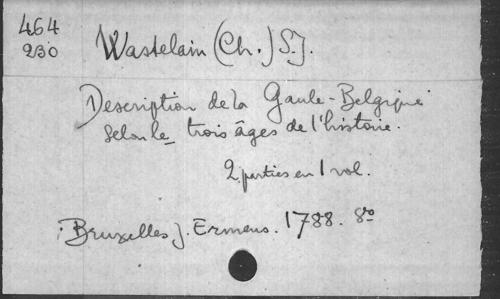 464
230
Wastelain (Ch.) S.J.
Description de la Gaule-Belgique
selon le trois âges de l'histoire.
2 parties en 1 vol.
Bruxelles J. Ermens. 1788. 8vo